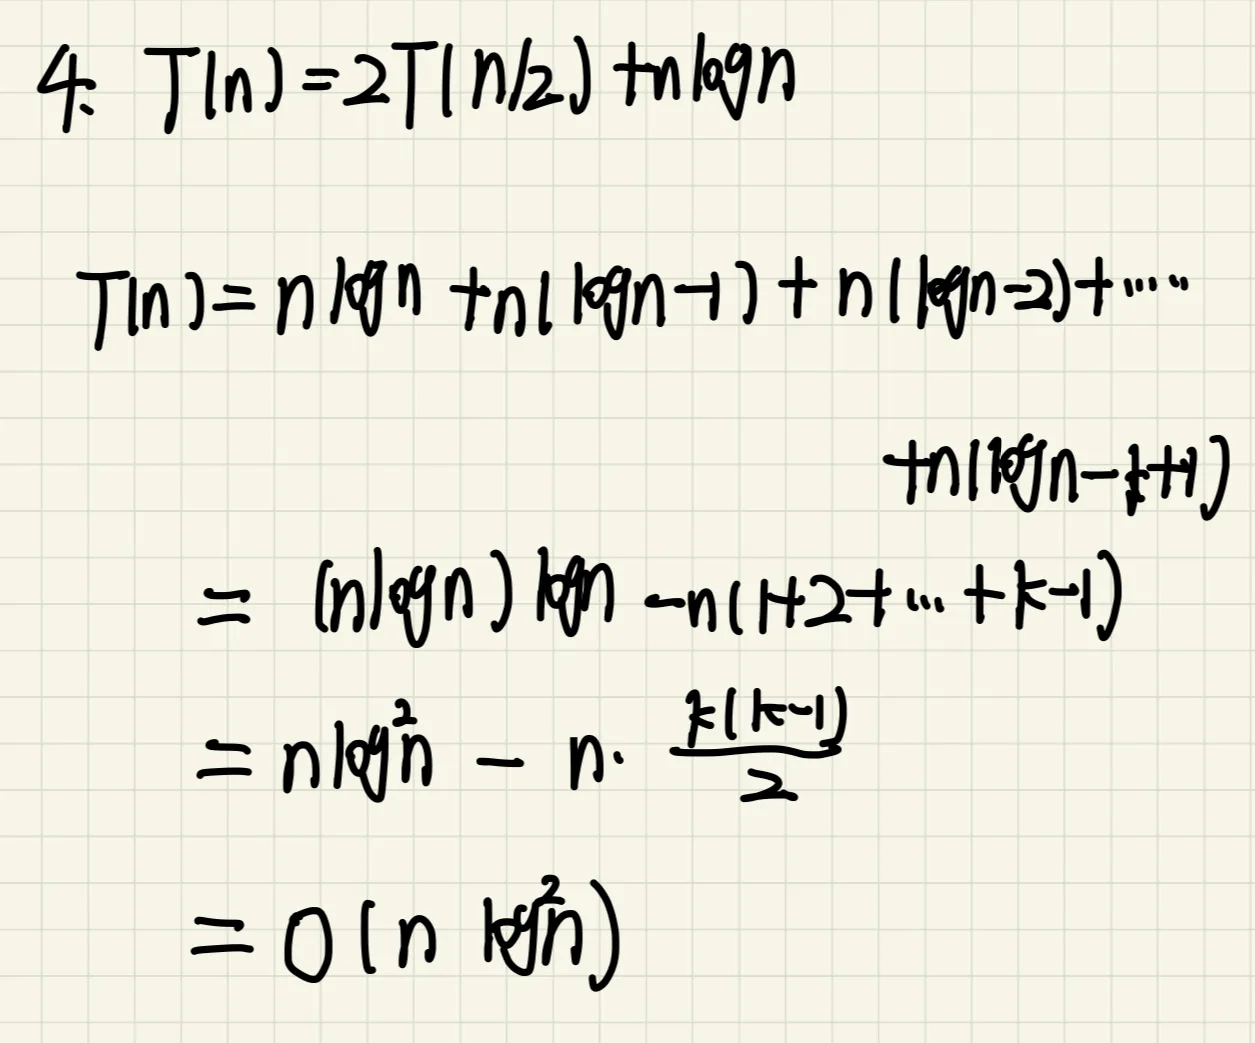 4. T(n) = 2T(n/2) + nlogn
T(n) = nlogn + n(logn-1) + n(logn-2) + ......
+ n(logn-k+1)
= (nlogn) logn - n(1+2+...+k-1)
= nlog²n - n· k(k-1)/2
= O(n log²n)